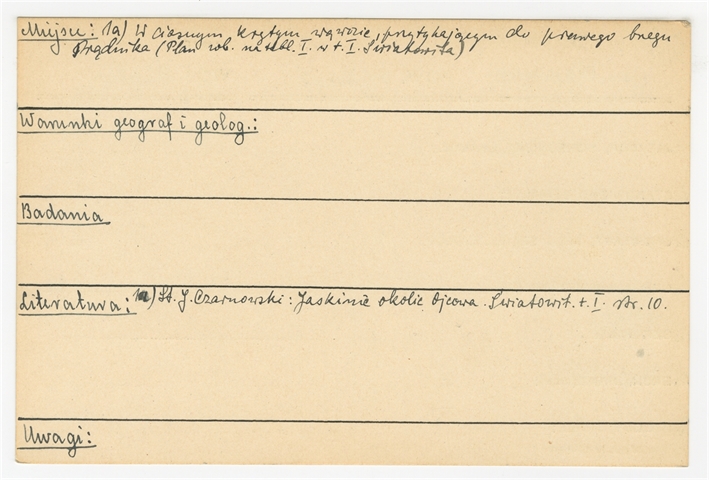 Miejsce: 1a) W ciasnym krętym wąwozie, przytykającym do prawego brzegu
Prądnika (Plan rob. na tabl. I. w t. I. Światowita)
Warunki geograf i geolog.:
Badania
Literatura: 1a) St. J. Czarnowski: Jaskinie okolic Ojcowa. Światowit. t. I. str. 10.
Uwagi: